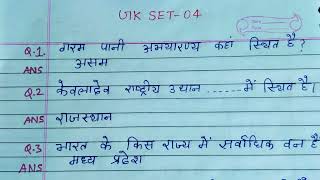 UIK SET-04
Q.1. गरम पानी अभयारण्य कहां स्थित है?
ANS असम
Q.2 केवलादेव राष्ट्रीय उधान ...... में स्थित है।
ANS राजस्थान
Q.3 भारत के किस राज्य में सर्वाधिक वन है
ANS मध्य प्रदेश